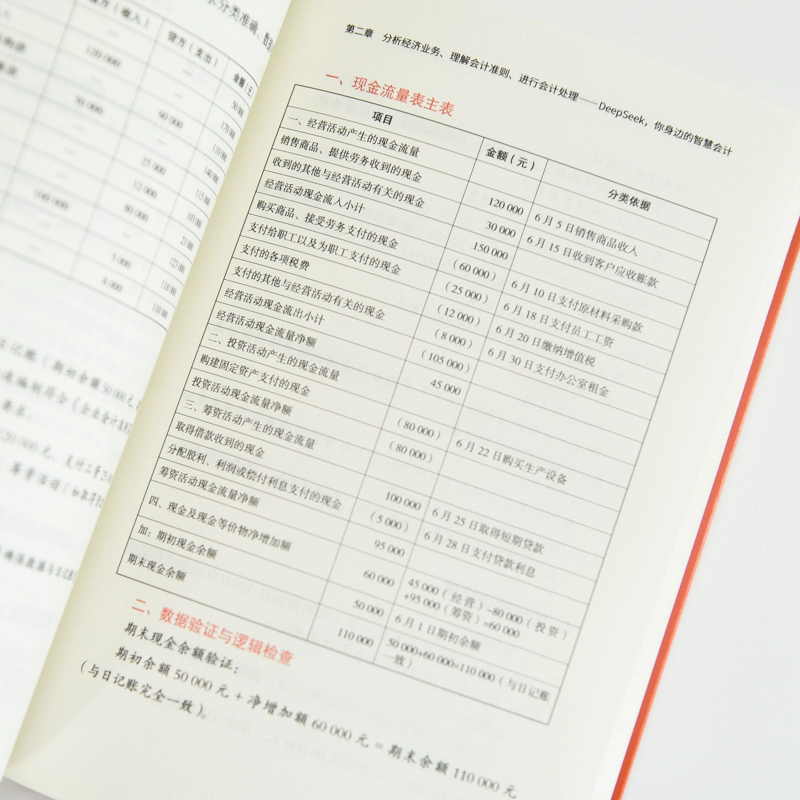 方（收入）
贷方（支出）
金额（元）
120 000
第二章 分析经济业务、理解会计准则、进行会计处理——DeepSeek，你身边的智慧会计
一、现金流量表主表
项目 金额（元） 分类依据
一、经营活动产生的现金流量
销售商品、提供劳务收到的现金 120 000 6 月 5 日销售商品收入
收到的其他与经营活动有关的现金 30 000 6 月 15 日收到客户应收账款
经营活动现金流入小计 150 000
购买商品、接受劳务支付的现金 （60 000） 6 月 10 日支付原材料采购款
支付给职工以及为职工支付的现金 （25 000） 6 月 18 日支付员工工资
支付的各项税费 （12 000） 6 月 20 日缴纳增值税
支付的其他与经营活动有关的现金 （8 000） 6 月 30 日支付办公室租金
经营活动现金流出小计 （105 000）
经营活动现金流量净额 45 000
二、投资活动产生的现金流量
购建固定资产支付的现金 （80 000） 6 月 22 日购买生产设备
投资活动现金流量净额 （80 000）
三、筹资活动产生的现金流量
取得借款收到的现金 100 000 6 月 25 日取得短期贷款
分配股利、利润或偿付利息支付的现金 （5 000） 6 月 28 日支付贷款利息
筹资活动现金流量净额 95 000
四、现金及现金等价物净增加额 60 000 45 000（经营）-80 000（投资）
+95 000（筹资）=60 000
加：期初现金余额 50 000 6 月 1 日期初余额
期末现金余额 110 000 50 000+60 000=110 000（与日记账
一致）
二、数据验证与逻辑检查
期末现金余额验证：
期初余额 50 000 元 + 净增加额 60 000 元 = 期末余额 110 000 元
（与日记账完全一致）。